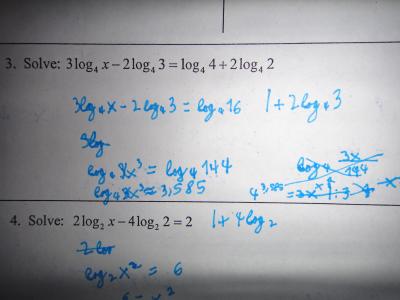 3. Solve: 3log₄ x − 2log₄ 3 = log₄ 4 + 2log₄ 2
3log₄x − 2log₄3 = log₄16 1 + 2log₄3
3log
log₄ x³ = log₄ 144
log₄ x³ = 3,585
log₄ 3x/144
4^3,585
4. Solve: 2log₂ x − 4log₂ 2 = 2 1 + 4log₂
2 log
log₂ x² = 6